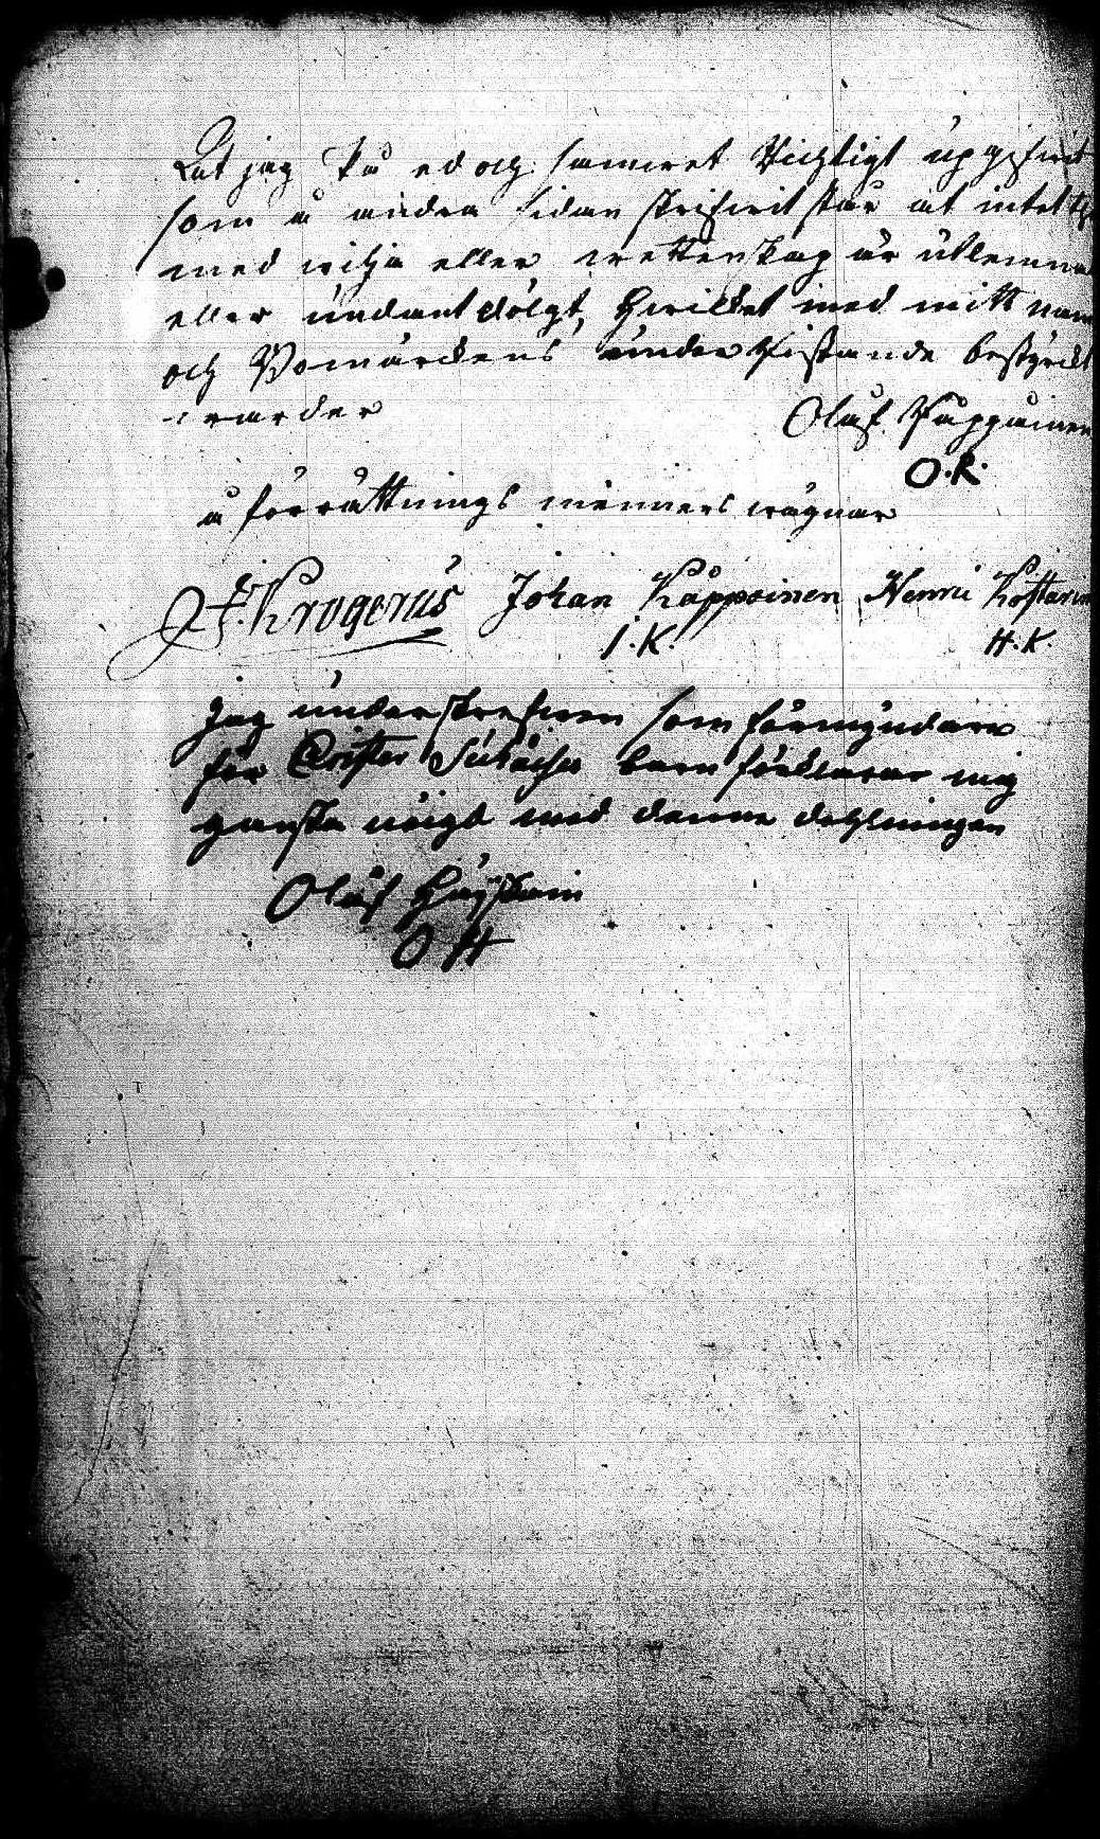 Det jag så ed och samvet Richtigt upgifvit
som å andra sidan skrifvit står at intet
med vilja eller wettenskap är utlemnat
eller undantdölgt, hvilket med mitt namn
och Bomärckens undersistande bestyrckt
warder
Oluf Käppäinen
O.K.
å förrättnings männers wägnar
J. F. Krogerus Johan Käppäinen Henric
J.K. H.K.
Jag underskrefven som förmyndare
för Crister barn förklarar mig
ganska nöigd med denna dehlningen
Oluf
O H